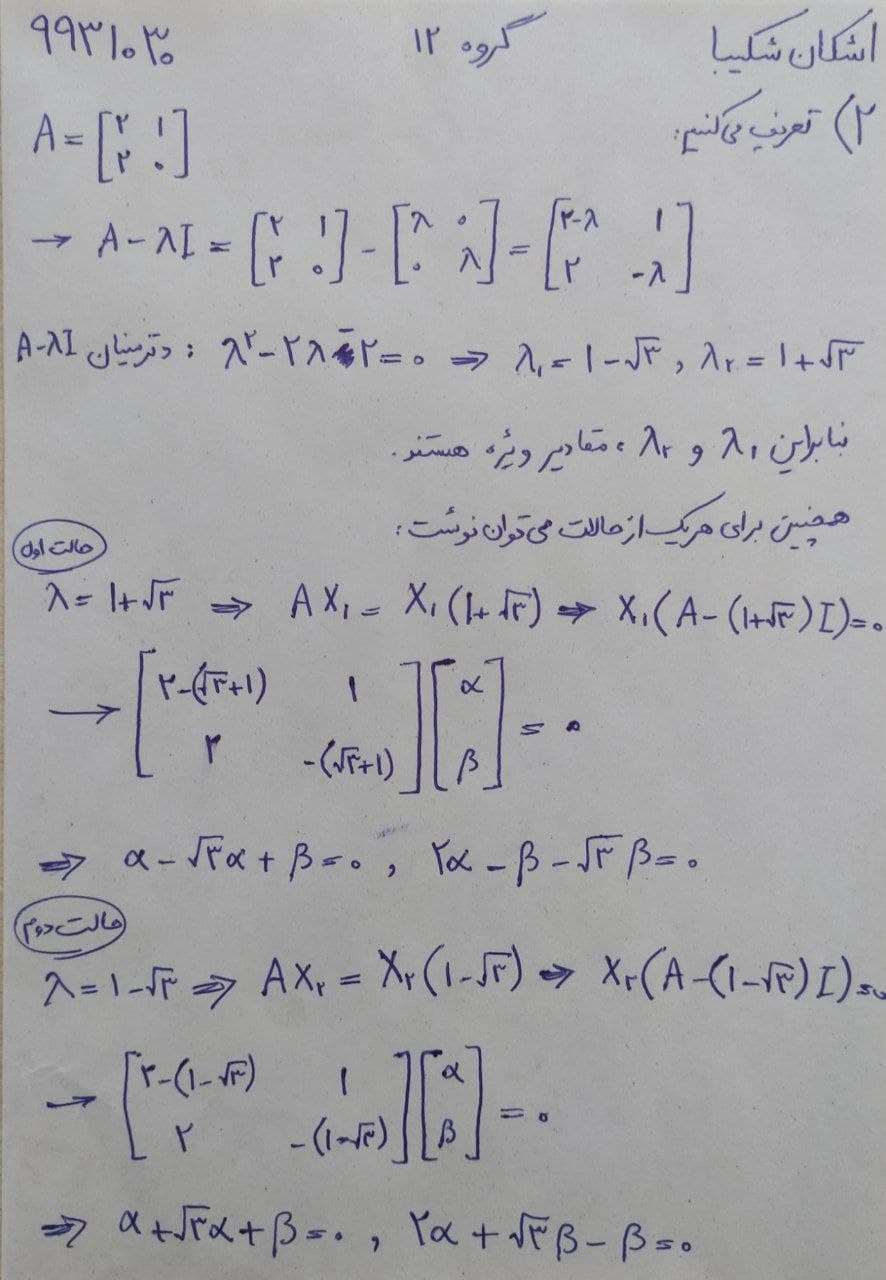 اشکان شکیبا گروه ۱۲ ۹۹۳۱۰۳۰
۲) تعریف می‌کنیم:
A = [۲ ۱; ۲ ۰]
→ A - λI = [۲ ۱; ۲ ۰] - [λ ۰; ۰ λ] = [۲-λ ۱; ۲ -λ]
دترمینان A-λI : λ² - ۲λ - ۲ = ۰ ⇒ λ₁ = ۱ - √۳ , λ₂ = ۱ + √۳
بنابراین λ₁ و λ₂ ، مقادیر ویژه هستند.
همچنین برای هریک از حالات می‌توان نوشت:
حالت اول
λ = ۱+√۳ ⇒ AX₁ = X₁(۱+√۳) ⇒ X₁(A-(۱+√۳)I) = ۰
→ [۲-(√۳+۱) ۱; ۲ -(√۳+۱)] [α; β] = ۰
⇒ α - √۳α + β = ۰ , ۲α - β - √۳β = ۰
حالت دوم
λ = ۱-√۳ ⇒ AX₂ = X₂(۱-√۳) ⇒ X₂(A-(۱-√۳)I) = ۰
→ [۲-(۱-√۳) ۱; ۲ -(۱-√۳)] [α; β] = ۰
⇒ α + √۳α + β = ۰ , ۲α + √۳β - β = ۰